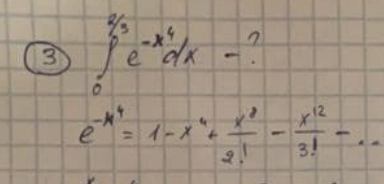 ③ ∫₀^{2/3} e^{-x⁴} dx - ?
e^{-x⁴} = 1 - x⁴ + x⁸/2! - x¹²/3! - ...